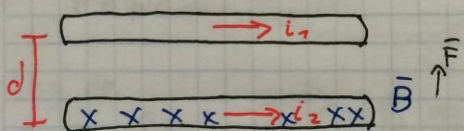 i₁
d
x x x x x i₂ x x B̅ F̅